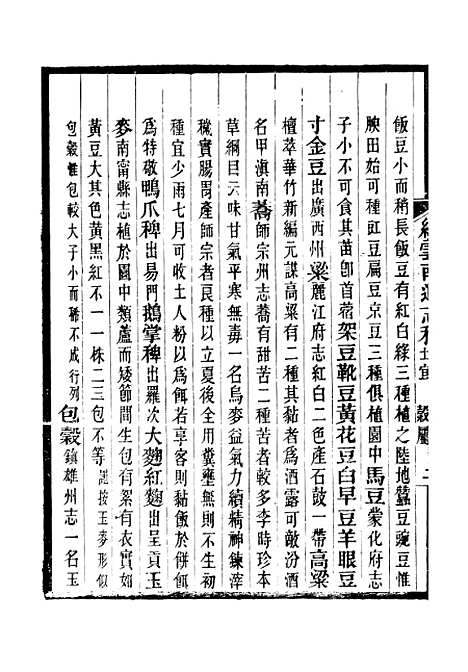 續雲南通志稿 食貨 穀屬 二
飯豆小而稍長飯豆有紅白綠三種植之陸地蠶豆豌豆惟
腴田始可種豇豆扁豆京豆三種俱植園中馬豆蒙化府志
子小不可食其苗卽苜蓿架豆靴豆黃花豆白早豆羊眼豆
寸金豆出廣西州粱麗江府志紅白二色產石鼓一帶高粱
檀萃華竹新編元謀高粱有二種其黏者爲酒露可敵汾酒
名甲滇南蕎師宗州志蕎有甜苦二種苦者較多李時珍本
草綱目云味甘氣平寒無毒一名烏麥益氣力續精神鍊滓
穢實腸胃產師宗者良種以立夏後全用糞壅無則不生初
種宜少雨七月可收土人粉以爲餌若享客則黏飯於併餌
爲特敬鴨爪稗出易門鵝掌稗出羅次大麴紅麴出呈貢玉
麥南甯縣志植於園中類蘆而矮節間生包有絮有衣實如
黃豆大其色黃黑紅不一一株二三包不等謹按玉麥形似
包穀惟包較大子小而稀不成行列包穀鎮雄州志一名玉